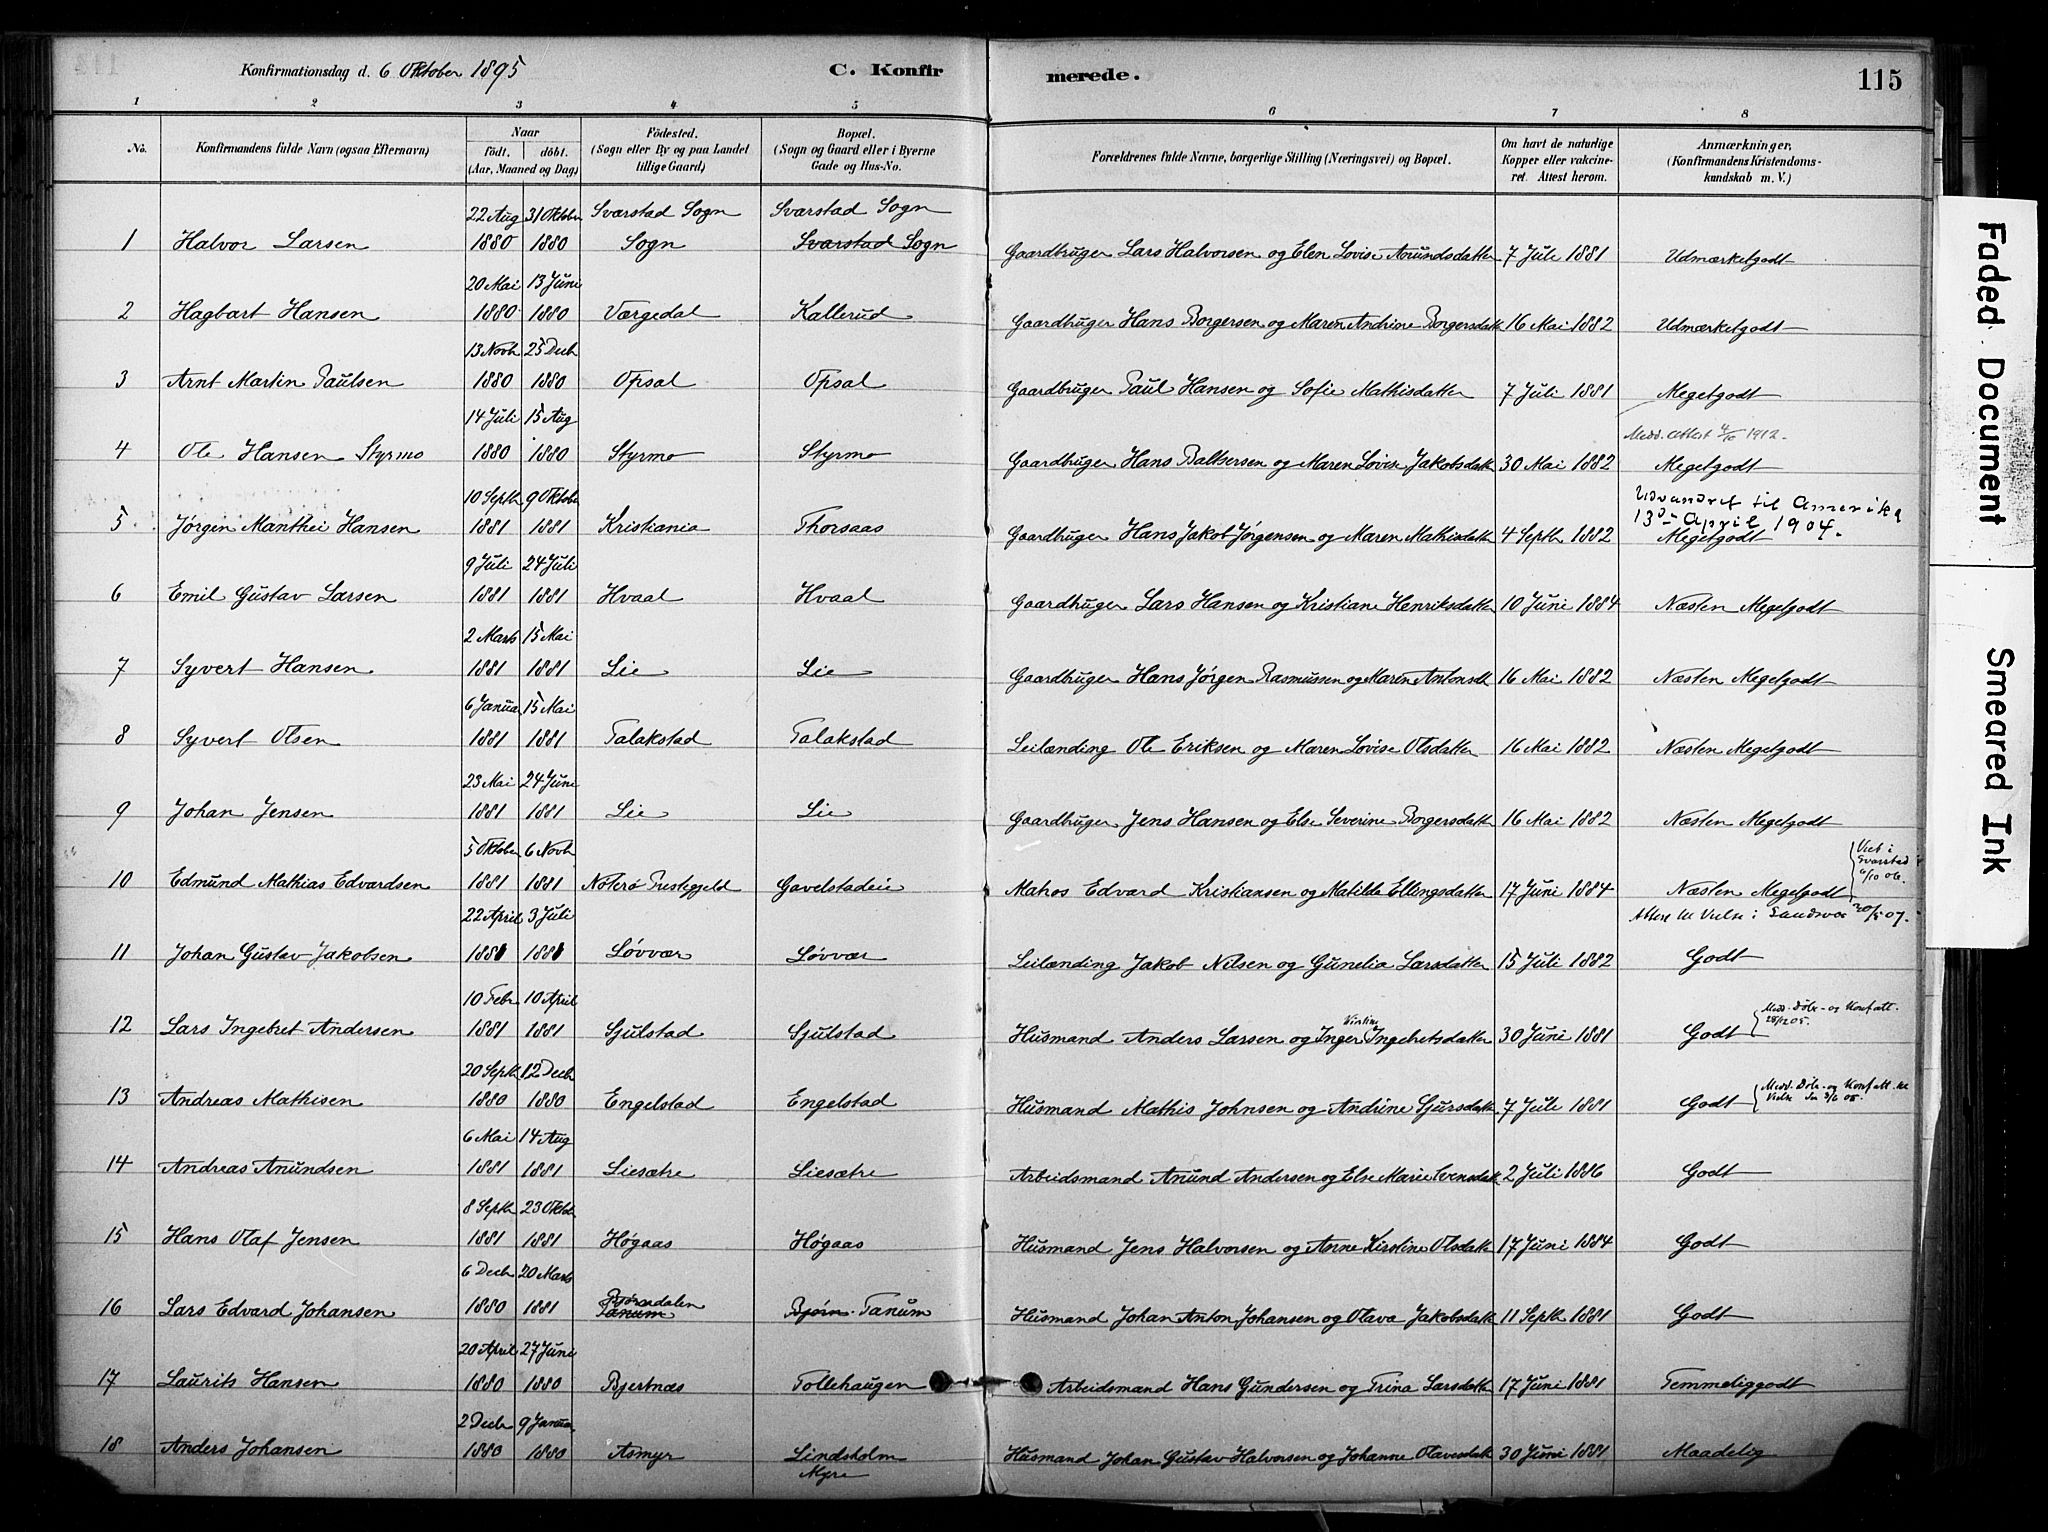 Konfirmationsdag d. 6 Oktober 1895 C. Konfir merede. 115
1 2 3 4 5 6 7 8
No. Konfirmandens fulde Navn (ogsaa Efternavn) Naar født. døbt. (Aar, Maaned og Dag) Fødested. (Sogn eller By og paa Landet tillige Gaard) Bopæl. (Sogn og Gaard eller i Byerne Gade og Hus-No. Forældrenes fulde Navne, borgerlige Stilling (Næringsvei) og Bopæl. Om havt de naturlige Kopper eller vakcineret. Attest herom. Anmærkninger, (Konfirmandens Kristendomskundskab m. V.)
22 Aug 31 Oktober Svarstad Sogn Svarstad Sogn
1 Halvor Larsen 1880 1880 Sogn Svarstad Sogn Gaardbruger Lars Halvorsen og Elen Lovise Anundsdatter 7 Juli 1881 Udmærketgodt
20 Mai 13 Juni
2 Hagbart Hansen 1880 1880 Værgedal Kallerud Gaardbruger Hans Borgersen og Maren Andrine Borgersdatt 16 Mai 1882 Udmærketgodt
13 Novb 25 Decb
3 Arnt Martin Paulsen 1880 1880 Opsal Opsal Gaardbruger Paul Hansen og Sofie Mathisdatter 7 Juli 1881 Megetgodt
14 Juli 15 Aug Medd. Attest 4/10 1912.
4 Ole Hansen Styrmo 1880 1880 Styrmo Styrmo Gaardbruger Hans Baltsersen og Maren Lovise Jakobsdatt 30 Mai 1882 Megetgodt
10 Septb 9 Oktober Udvandret til Amerika
13de April 1904.
5 Jørgen Manthei Hansen 1881 1881 Kristiania Thorsaas Gaardbruger Hans Jakob Jørgensen og Maren Mathisdatt 4 Septb 1882 Megetgodt
9 Juli 24 Juli
6 Emil Gustav Larsen 1881 1881 Hvaal Hvaal Gaardbruger Lars Hansen og Kristiane Henriksdatter 10 Juni 1884 Næsten Megetgodt
2 Marts 15 Mai
7 Syvert Hansen 1881 1881 Lie Lie Gaardbruger Hans Jørgen Rasmussen og Maren Antonsdt 16 Mai 1882 Næsten Megetgodt
6 Janua 15 Mai
8 Syvert Olsen 1881 1881 Talakstad Talakstad Leilænding Ole Eriksen og Maren Lovise Olsdatter 16 Mai 1882 Næsten Megetgodt
23 Mai 24 Juni
9 Johan Jensen 1881 1881 Lie Lie Gaardbruger Jens Hansen og Else Severine Borgersdatt 16 Mai 1882 Næsten Megetgodt
5 Oktober 6 Novb Viet i Svarstad /10 06.
10 Edmund Mathias Edvardsen 1881 1881 Nøterø Prestegjeld Gavelstadeie Matros Edvard Kristiansen og Matilde Ellingsdatter 17 Juni 1884 Næsten Megetgodt
22 April 3 Juli Attest til Vielse i Sandsvær 20/5 07.
11 Johan Gustav Jakobsen 1881 1881 Løvvær Løvvær Leilænding Jakob Nilsen og Gunelia Larsdatter 15 Juli 1882 Godt
10 Febr 10 April Medd. Dåbs- og Konf att. 28/12 05.
12 Lars Ingebret Andersen 1881 1881 Sjulstad Sjulstad Husmand Anders Larsen og Inger Kirstine Ingebretsdatter 30 Juni 1881 Godt
20 Septb 12 Decb Medd. Dåbs- og Konf att. til Vielse
13 Andreas Mathisen 1880 1880 Engelstad Engelstad Husmand Mathis Johnsen og Andrine Sjursdatt 7 Juli 1881 Godt
6 Mai 14 Aug
14 Andreas Anundsen 1881 1881 Liesætre Liesætre Arbeidsmand Anund Andersen og Else Marie Svensdatt 2 Juli 1886 Godt
8 Septb 23 Oktbr
15 Hans Olaf Jensen 1881 1881 Høgaas Høgaas Husmand Jens Halvorsen og Anne Kirstine Olsdatt 17 Juni 1884 Godt
6 Decb 20 Marts
16 Lars Edvard Johansen 1880 1881 Bjørndalen Tanum Bjørn Tanum Husmand Johan Anton Johansen og Olava Jakobsdatt 11 Septb 1881 Godt
20 April 27 Juni
17 Laurits Hansen 1880 1880 Bjertnæs Tollehaugen Arbeidsmand Hans Gundersen og Trina Larsdatter 17 Juni 1881 Temmeliggodt
2 Decb 9 Januar
18 Anders Johansen 1880 1880 Asmyr Lindsholm Myre Husmand Johan Gustav Halvorsen og Johanne Olavesdatt 30 Juni 1881 Maadelig
Faded Document
Smeared Ink